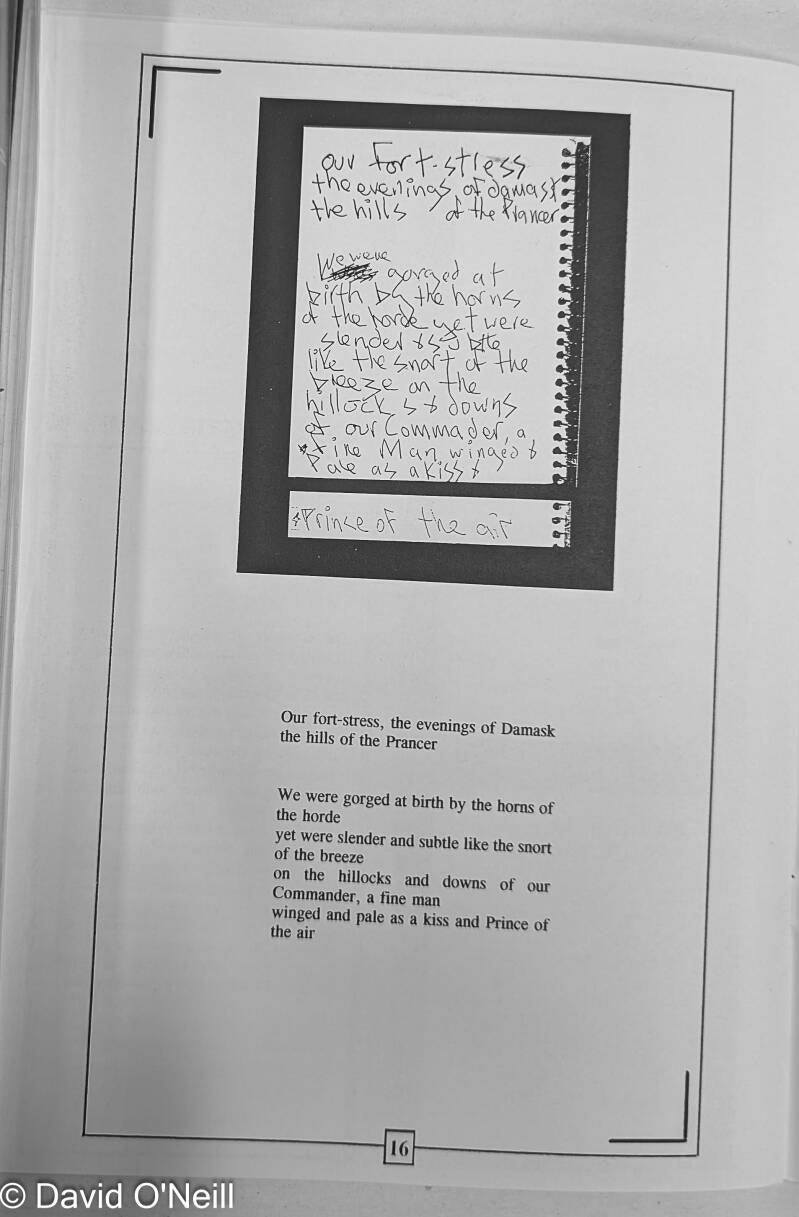 our Fort-stress
the evenings of damask
the hills of the Prancer
We were
gorged at
birth by the horns
of the horde yet were
slender & subtle
like the snort of the
breeze on the
hillocks & downs
of our Commader, a
fine Man winged &
Pale as a kiss &
Prince of the air
Our fort-stress, the evenings of Damask
the hills of the Prancer
We were gorged at birth by the horns of
the horde
yet were slender and subtle like the snort
of the breeze
on the hillocks and downs of our
Commander, a fine man
winged and pale as a kiss and Prince of
the air
16
© David O'Neill